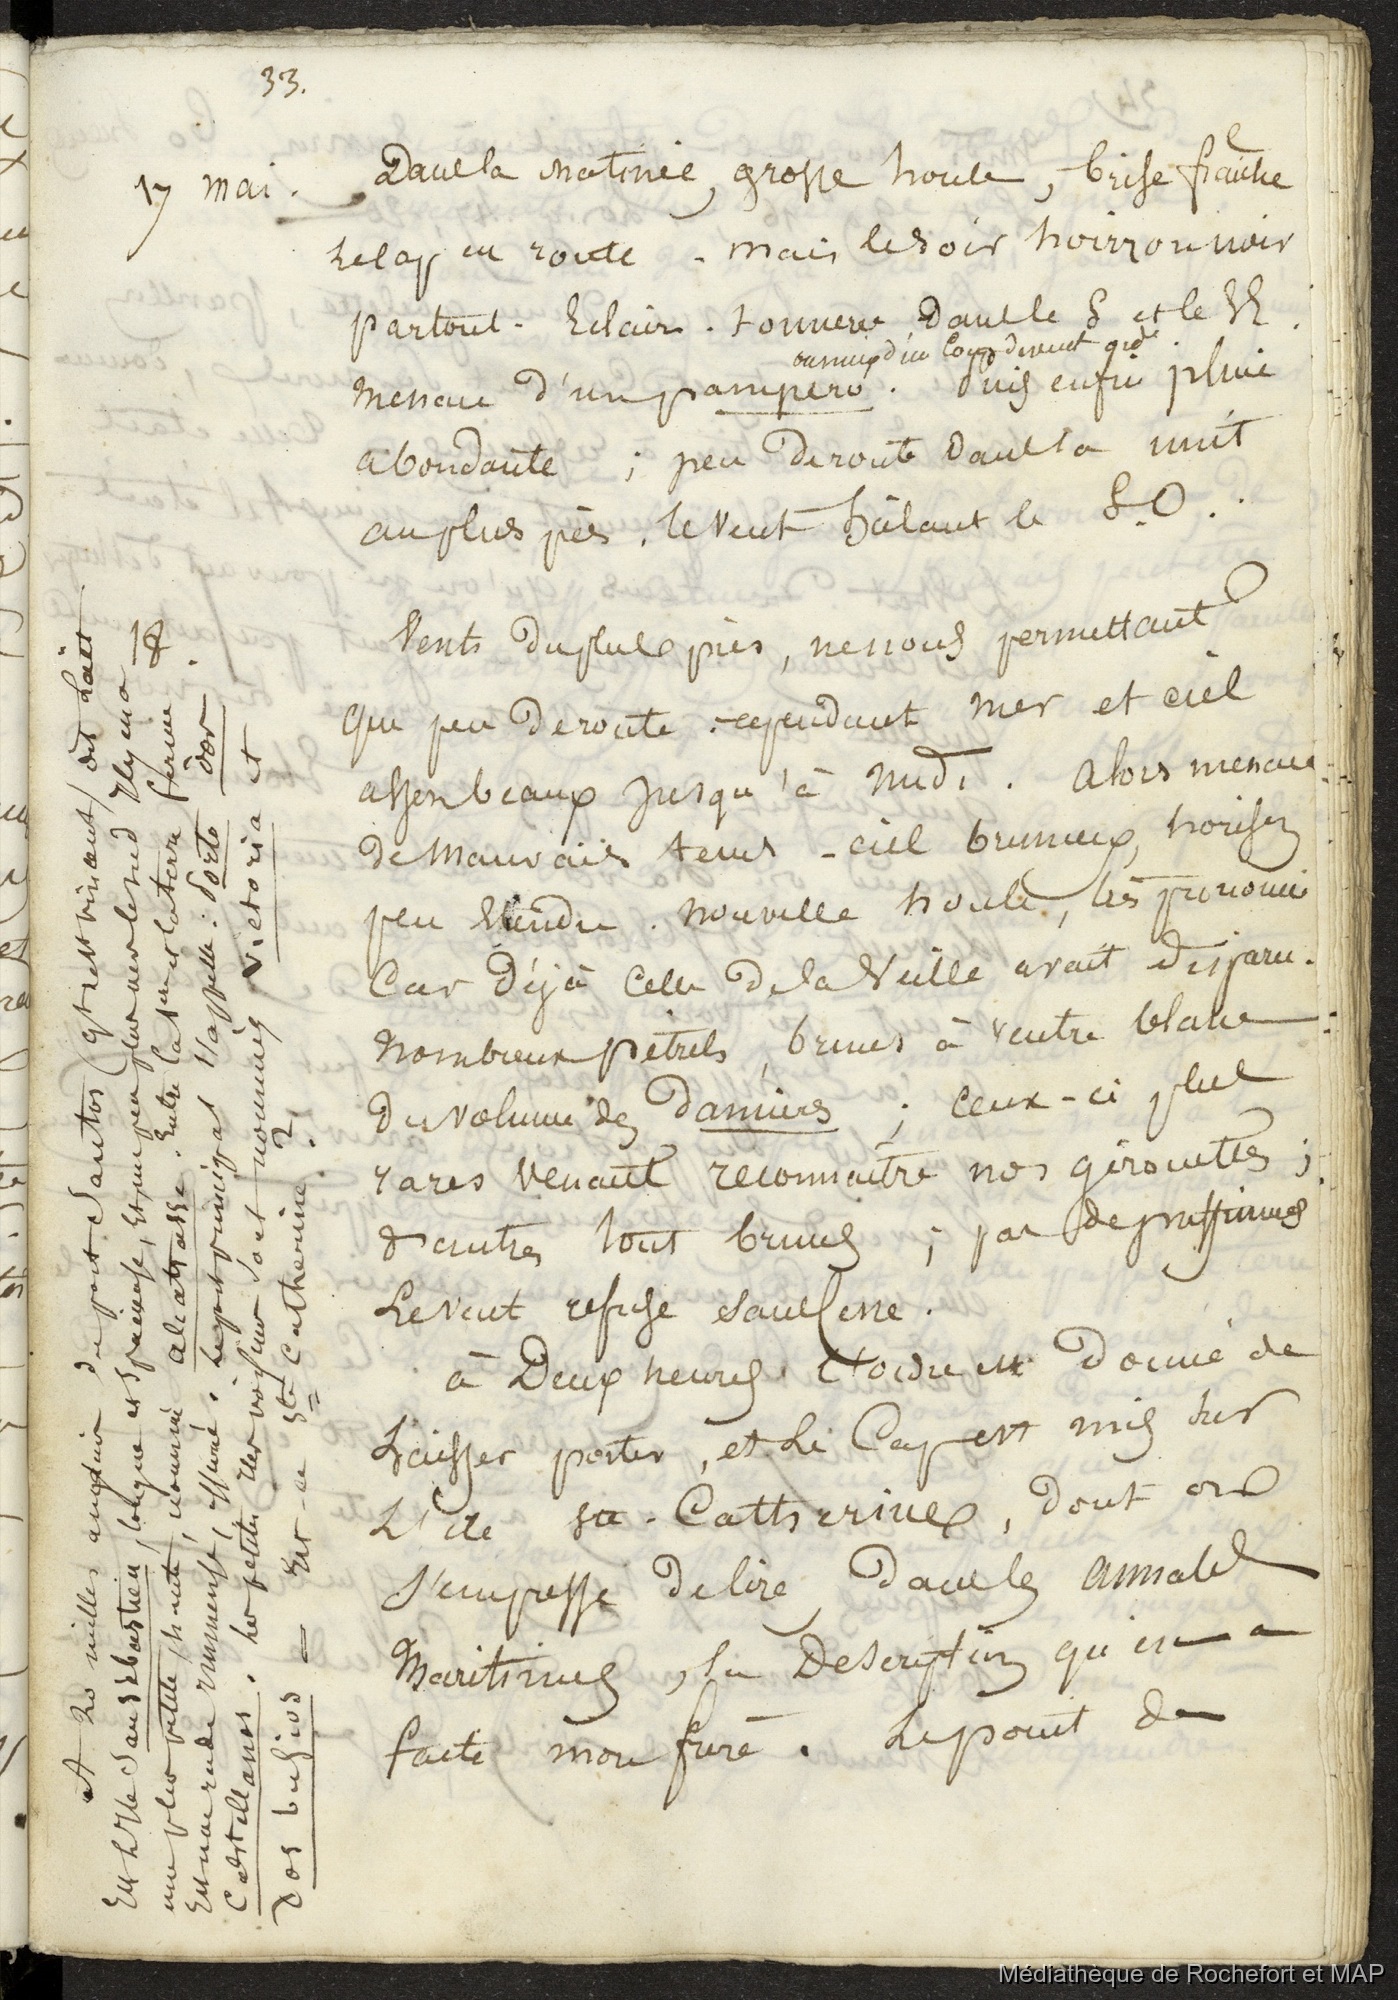 33.
17 mai. Dans la matinée, grosse houle, brise fraîche
le cap en route - mais le soir horizon noir
partout. Eclair. tonnerre dans le S et le SE.
ou mieux d'un Coup de vent
menace d'un pampero. Puis enfin pluie
abondante ; peu de route dans la nuit
au plus près. le vent hâlant le S.O.
18.
Vents du plus près, ne nous permettant
que peu de route. cependant mer et ciel
assez beaux jusqu'à midi. Alors menace
de mauvais tems - ciel brumeux, horison
peu étendu. nouvelle houle, très prononcée
Car Déjà Celle de la Veille avait disparu.
Nombreux pétrels, bruns à ventre blanc
du volume des damiers ; ceux-ci plus
rares venant reconnaître nos girouettes ;
d'autres tout bruns ;
Le vent refuse sans cesse.
à Deux heures. L'ordre est Donné de
Laisser porter, et Le Cap est mis sur
L'Ile Ste. Catherine, dont on
s'empresse de lire, dans les annales
Maritimes, la Description qu'en a
faite mon frère. Le point de
A 20 milles au sud du port Santos (qui est vincent) dit Laët
Est L'Ile San Sebastien, longue et spacieuse, et un peu plus vers le sud Il y en a
une plus petite, haute, nommé alcatrasse. Entre lat. et la terre ferme
Est une rade immense, Le port principal s'appelle : Porto dos
Castellanos. les petites Iles voisines sont nommées Victoria et
Dos bufios = Est-ce Ste Catherine ?
Médiathèque de Rochefort et MAP